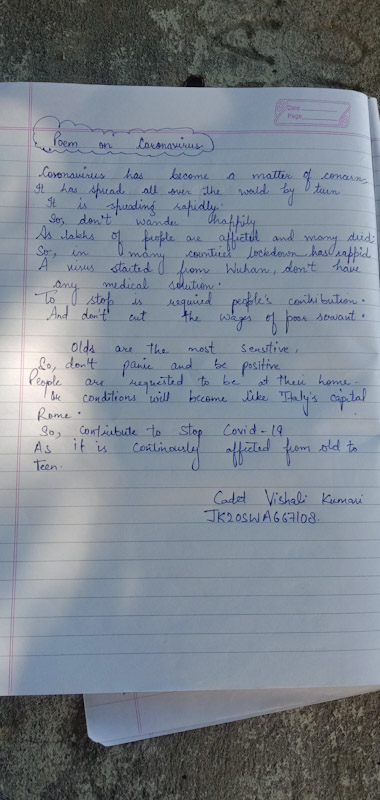 Date
Page
Poem on Coronavirus
Coronavirus has become a matter of concern,
It has spread all over the world by turn
It is spreading rapidly.
So, don't wander happily
As lakhs of people are affected and many died.
So, in many countries lockdown has
A virus started from Wuhan, don't have
any medical solution.
To stop is required people's contribution.
And don't cut the wages of poor servant.
Olds are the most sensitive,
So, don't panic and be positive
People are requested to be at their home.
Or conditions will become like Italy's capital
Rome.
So, contribute to stop Covid-19
As it is continously affected from old to
teen.
Cadet Vishali Kumari
JK20SWA667108.